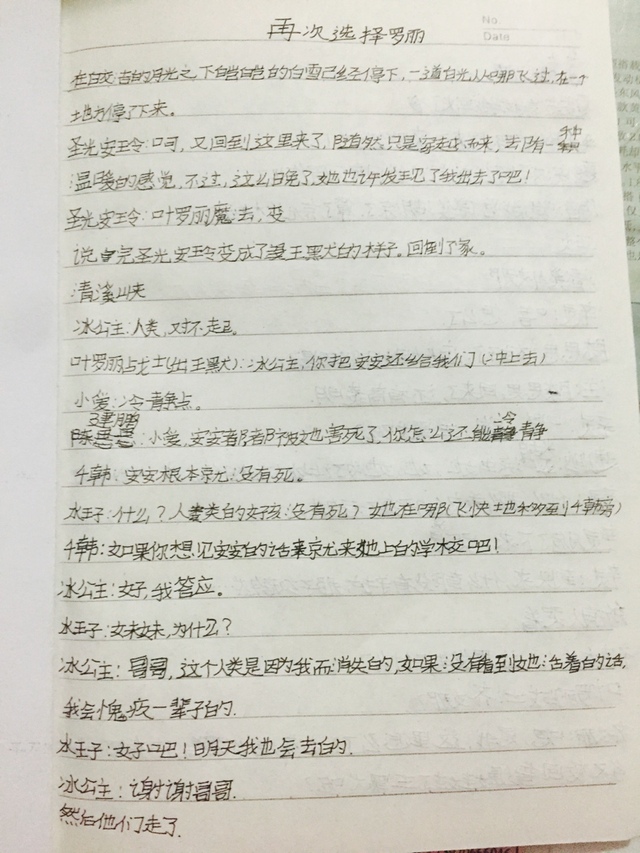 再次选择罗丽
No.
Date
在皎洁的月光之下皑皑的白雪已经停下,一道白光从哪飞过,在一个
地方停了下来。
圣光安玲:呵,又回到这里来了,虽然只是穿越而来,去陌一种
温暖的感觉,不过,这么晚了她也许发现了我出去了吧!
圣光安玲:叶罗丽魔法,变
说完圣光安玲变成了王默的样子。回倒了家。
清溪峡
冰公主:人类,对不起。
叶罗丽战士(出王默):冰公主,你把安安还给我们(冲上去)
小爱:冷静点。
建鹏:小爱,安安都那被她害死了,你怎么还能冷静
千韩:安安根本就没有死。
水王子:什么?人类的女孩没有死?她在哪(飞快地移到千韩旁)
千韩:如果你想见安安的话来就来她上的学校吧!
冰公主:好,我答应。
水王子:妹妹,为什么?
冰公主:哥哥,这个人类是因为我而消失的,如果没有看到她活着的话,
我会愧疚一辈子的.
水王子:好吧!明天我也会去的.
冰公主:谢谢哥哥.
然后他们走了.